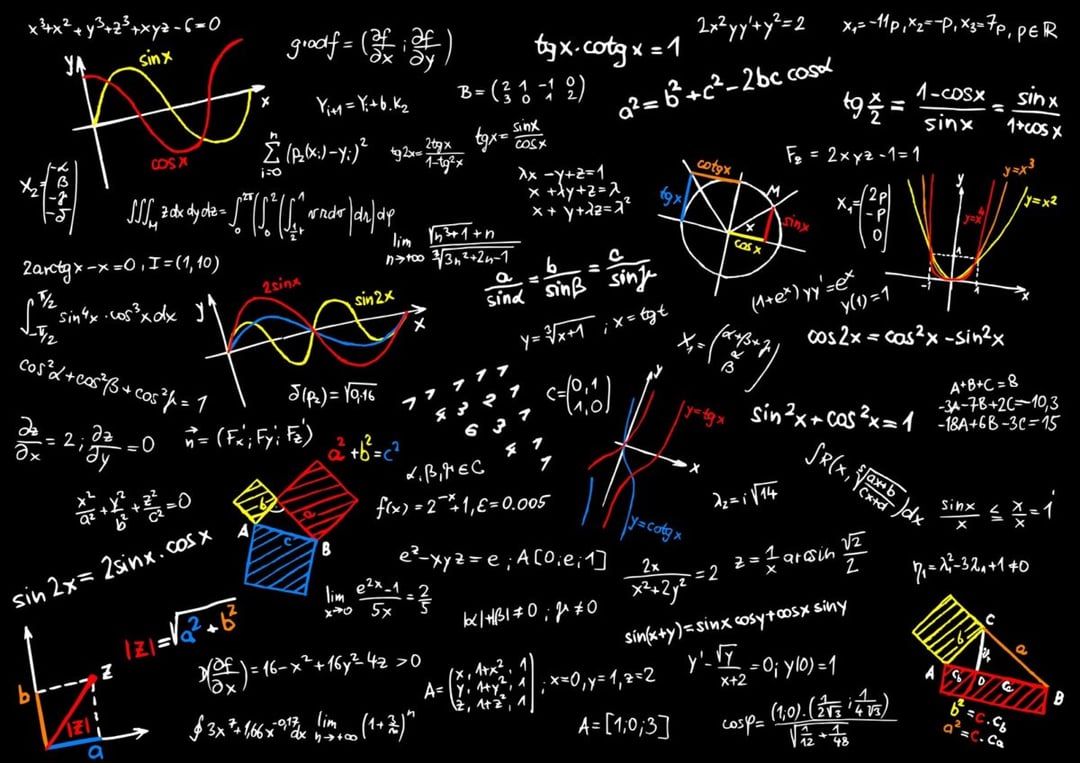 x³+x²+y³+z³+xyz-6=0
y
sinx
x
cosx
gradf = (∂f/∂x ; ∂f/∂y)
tgx·cotgx=1
2x²yy'+y²=2
x₁=-11p, x₂=-p, x₃=7p, p∈ℝ
Yᵢ₊₁=Yᵢ+b.k₂
B=(2 1 -1 0
3 0 1 2)
a²=b²+c²-2bc cosα
tg x/2 = (1-cosx)/sinx = sinx/(1+cosx)
∑ⁿᵢ₌₀ (p₂(xᵢ)-yᵢ)²
tg2x=2tgx/(1-tg²x)
tgx=sinx/cosx
F_z=2xyz-1=1
X₂=(-α
β
-γ
-δ)
λx-y+z=1
x+λy+z=λ
x+y+λz=λ²
cotgx
tgx
M
x
sinx
cosx
X₁=(2p
-p
0)
y
y=x³
y=x²
y=x⁴
1
-1
1
x
∭_M zdxdydz=
lim n→+∞ (√(n³+1)+n)/∛(3n²+2n-1)
2arctgx-x=0, I=(1,10)
a/sinα = b/sinβ = c/sinγ
(1+eˣ)yy'=eˣ
y(1)=1
∫ -π/2 π/2 sin⁴x·cos³xdx
y
2sinx
sin2x
x
y=∛(x+1) ; x=tgt
X₁=(α+β+γ
α
β)
cos2x=cos²x-sin²x
cos²α+cos²β+cos²γ=1
δ(p₂)=√0.16
1 1 1 1
1 2 3 2 1
C=(0,1
1,0)
y
y=tgx
x
y=cotgx
A+B+C=8
-3A-7B+2C=-10,3
-18A+6B-3C=15
sin²x+cos²x=1
∂z/∂x=2; ∂z/∂y=0
n⃗=(Fx';Fy';Fz')
a²+b²=c²
b
a
A
c
B
α,β,γ∈C
∫R(x, ⁵√((ax+b)/(cx+d)))dx
x²/a²+y²/b²+z²/c²=0
f(x)=2⁻ˣ+1, ε=0.005
λ₂=i√14
sinx/x ≤ x/x = 1
sin2x=2sinx·cosx
eᶻ-xyz=e ; A[0;e;1]
2x/(x²+2y²)=2
z=1/x arcsin √2/2
η₁=λ₁²-3λ₁+1≠0
lim x→0 (e²ˣ-1)/5x=2/5
|α|+|β|≠0 ; γ≠0
sin(x+y)=sinxcosy+cosx siny
|z|=√(a²+b²)
b
z
|z|
a
(∂f/∂x)=16-x²+16y²-4z>0
A=(x, 1+x², 1
y, 1+y², 1
z, 1+z², 1) ; x=0,y=1,z=2
y'-√y/(x+2)=0; y(0)=1
C
b
a
A
c_b
D
c_a
B
b²=c.c_b
a²=c.c_a
∮3x⁷+1,66x⁻⁰·¹⁷dx
lim n→+∞ (1+3/n)ⁿ
A=[1;0;3]
cosφ=(1;0).(1/(2√3);1/(4√3))/√(1/12+1/48)